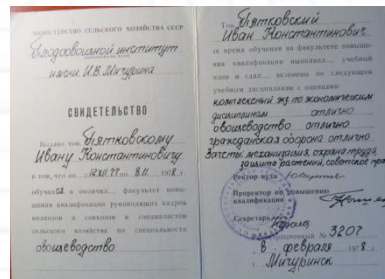 МИНИСТЕРСТВО СЕЛЬСКОГО ХОЗЯЙСТВА СССР
Плодоовощной институт
имени И.В.Мичурина
СВИДЕТЕЛЬСТВО
Выдано тов. Пятковскому
Ивану Константиновичу
в том, что он
обучался и окончил факультет повыше-
ния квалификации руководящих кадров
колхозов и совхозов и специалистов
сельского хозяйства по специальности
овощеводство
Тов. Пятковский
Иван Константинович
за время обучения на факультете повыше-
ния квалификации выполнил учебный
план и сдал экзамены по следующим
учебным дисциплинам с оценками:
комплексный экз по экономическим
дисциплинам отлично
овощеводство отлично
гражданская оборона отлично
Зачеты: механизация, охрана труда,
защита растений, советское
Ректор вуза
Проректор по повышению
квалификации
Секретарь
Регистрационный № 3207
8 февраля 1978 г.
г. Мичуринск